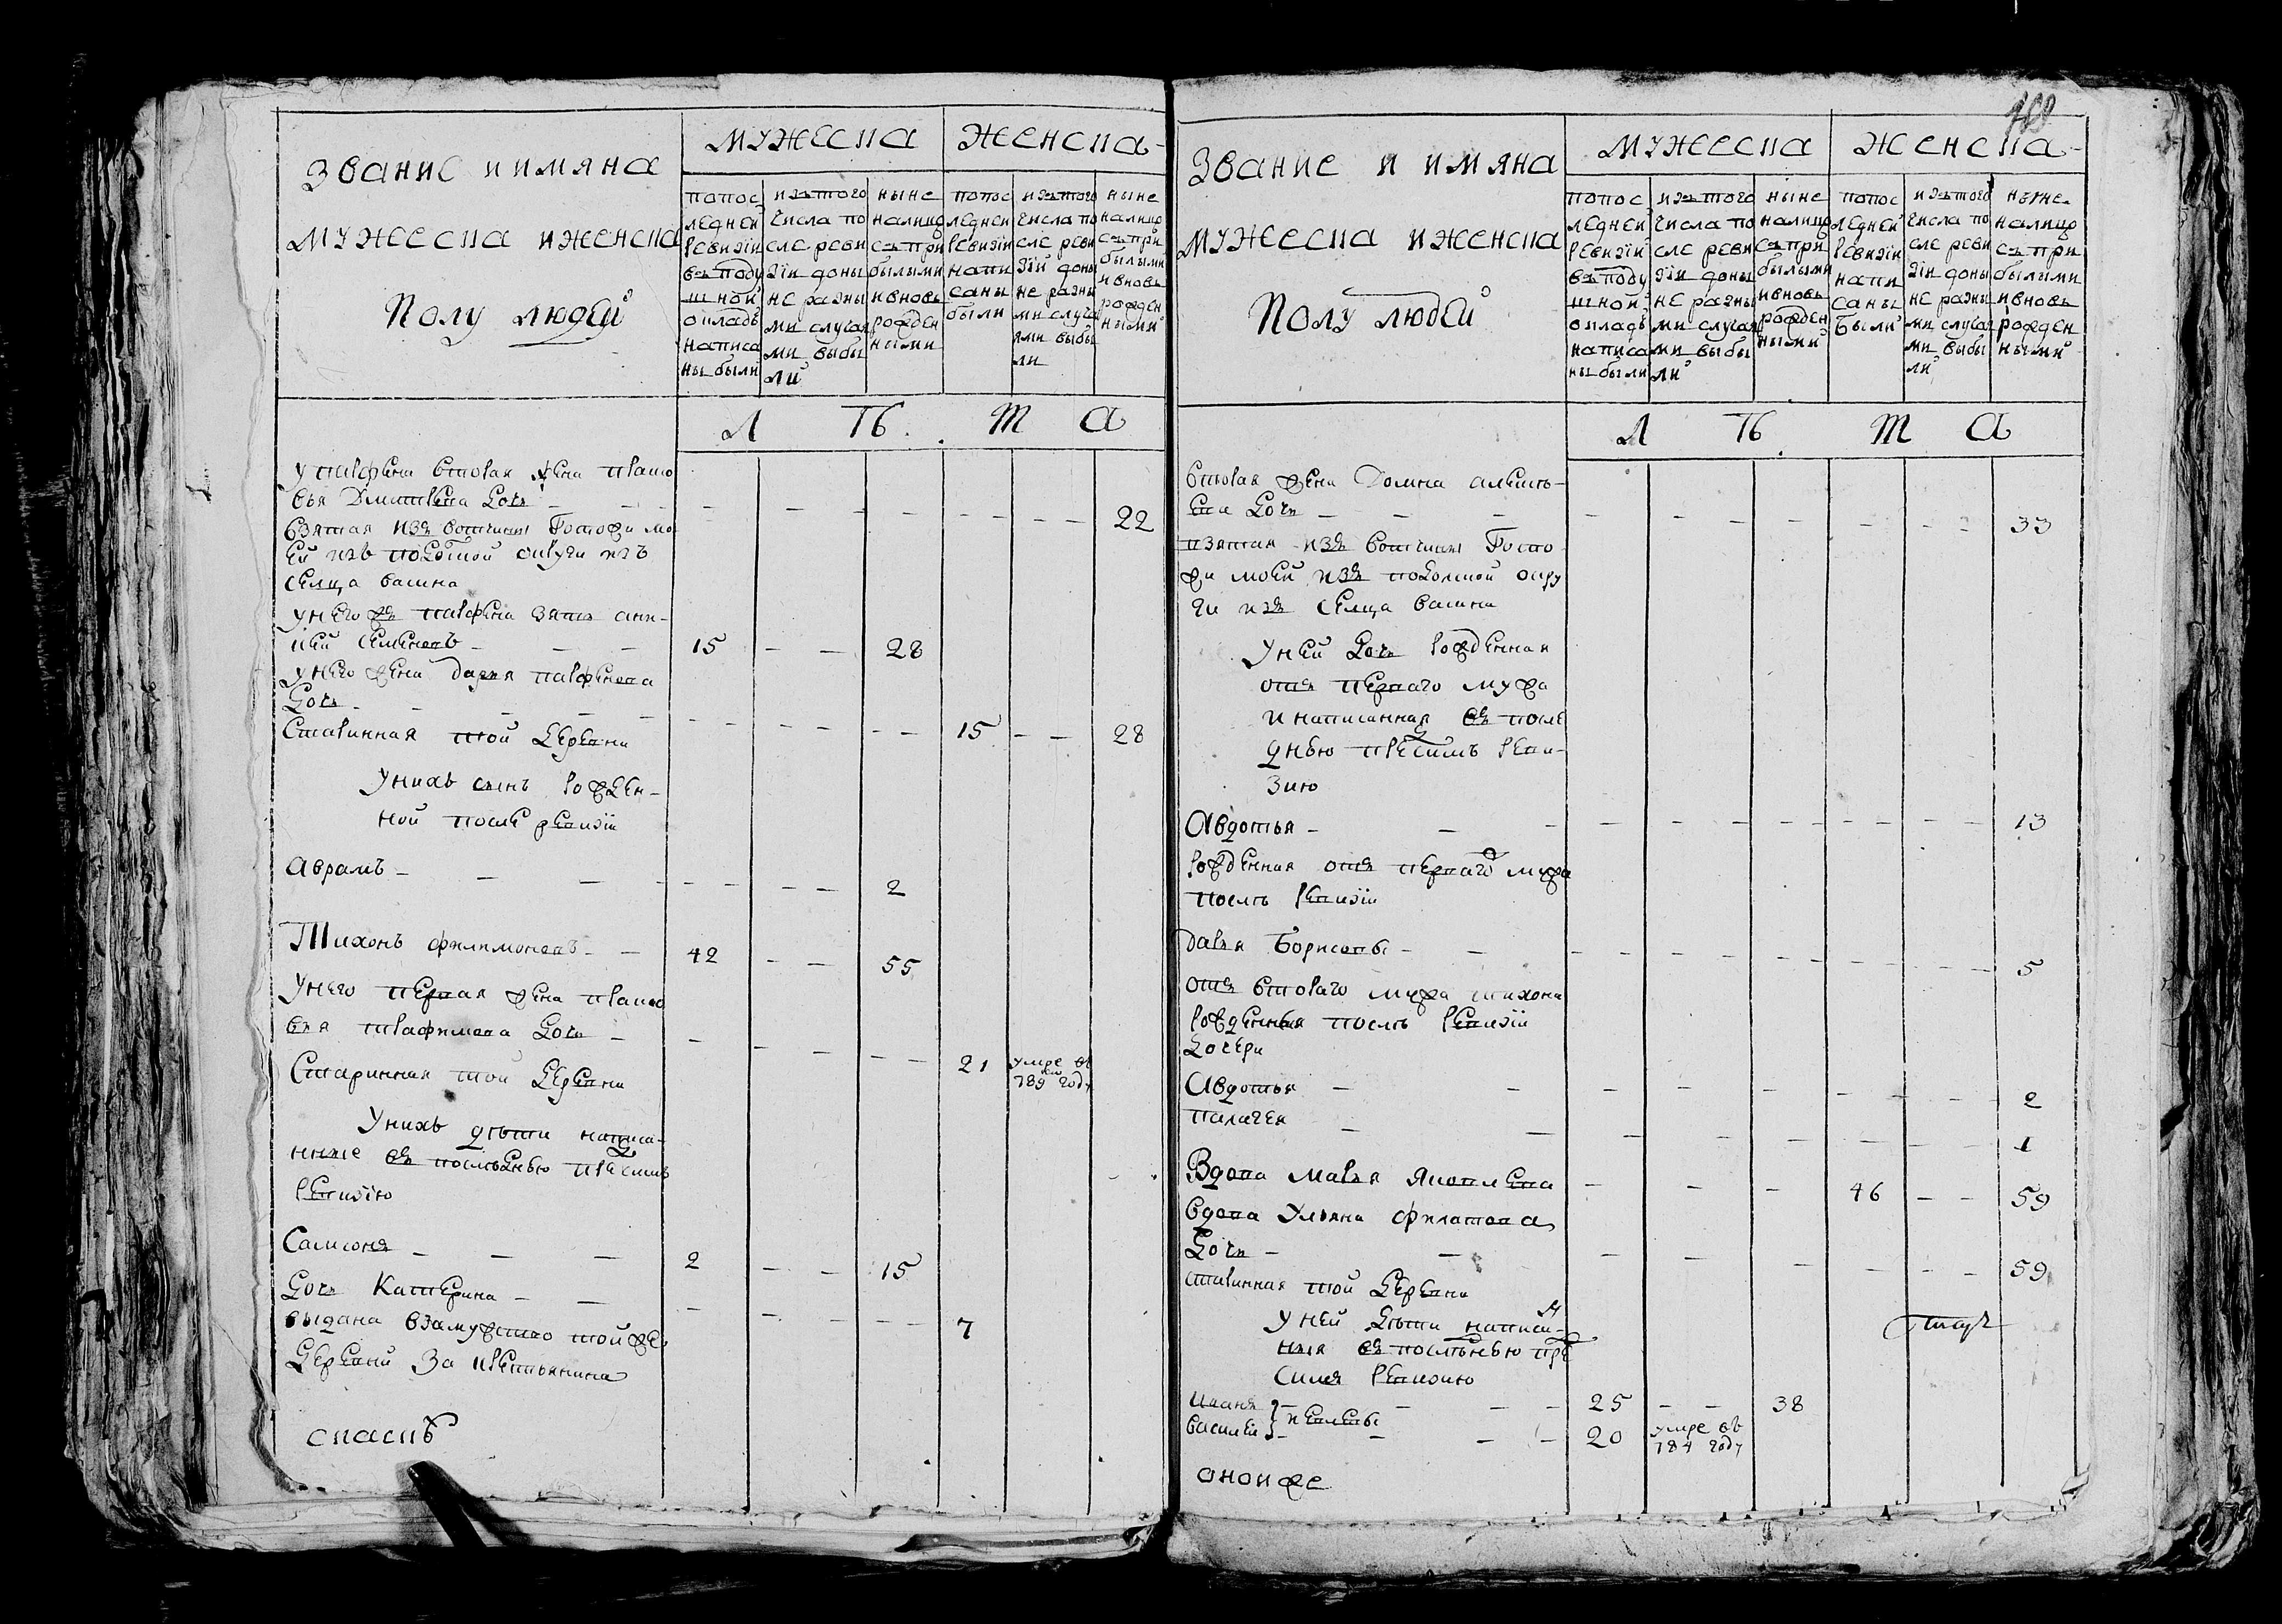 звание и имяна
мужеска и женска
полу людей
мужеска
женска
попос
ледней
ревизiи
въ поду
шной
окладъ
написа
ны были
изъ того
числа по
сле реви
зiи доны
не разны
ми случая
ми выбы
ли
ныне
налицо
съ при
былыми
и вновь
рожден
ными
попос
ледней
ревизiи
напи
саны
были
изъ того
числа по
сле реви
зiи доны
не разны
ми случа
ями выбы
ли
ныне
налицо
съ при
былыми
и вновь
рожден
ными
Л Ѣ Т А
у парфена вторая жена праско
вья дмитрева дочь - - - 22
взятая изъ вотчины госпожи мо
ей изъ
селца васина
у него жъ парфена зять
кей семеновъ - - - 15 - - 28
у него жена дарья парфенова
дочь - - - 15 - - 28
старинная той деревни
у нихъ сынъ рожден-
ной после ревизiи
аврамъ - - - 2
Тихонъ филимоновъ - - 42 - - 55
у него первая жена праско
вья трафимова дочь - - - 21 умре въ
789 году
старинная той деревни
у нихъ дѣти написа-
нные въ послѣднюю пре симъ
ревизiю
самсонъ - - - 2 - - 15
дочь катерина - - - 7
выдана в замужство той же
деревни за крестьянина
спаскъ
звание и имяна
мужеска и женска
полу людей
мужеска
женска
попос
ледней
ревизiи
въ поду
шной
окладъ
написа
ны были
изъ того
числа по
сле реви
зiи доны
не разны
ми случая
ми выбы
ли
ныне
налицо
съ при
былыми
и вновь
рожден
ными
попос
ледней
ревизiи
напи
саны
были
изъ того
числа по
сле реви
зiи доны
не разны
ми случая
ми выбы
ли
ныне
налицо
съ при
былыми
и вновь
рожден
ными
Л Ѣ Т А
вторая жена домна алексѣ-
ева дочь - - - 33
взятая изъ вотчины госпо
жи моей изъ окру
ги изъ селца васина
у ней дочь рожденная
отъ перваго мужа
и написанная въ после
днюю пре симъ реви-
зию
авдотья - - - 13
рожденная отъ перваго мужа
послѣ ревизiи
дарья борисовы - - - 5
отъ втораго мужа тихона
рожденныя послѣ ревизiи
дочери
авдотья - - - 2
палагея - - - 1
вдова марья яковлева - - - 46 - - 59
вдова ульяна филатова
дочь - - - 59
старинная той деревни
у ней дѣти написа-
ныя въ послѣднюю пре
симъ ревизию
иванъ
василей } - - 25 - - 38
- - 20 умре въ
784 году
оноиже